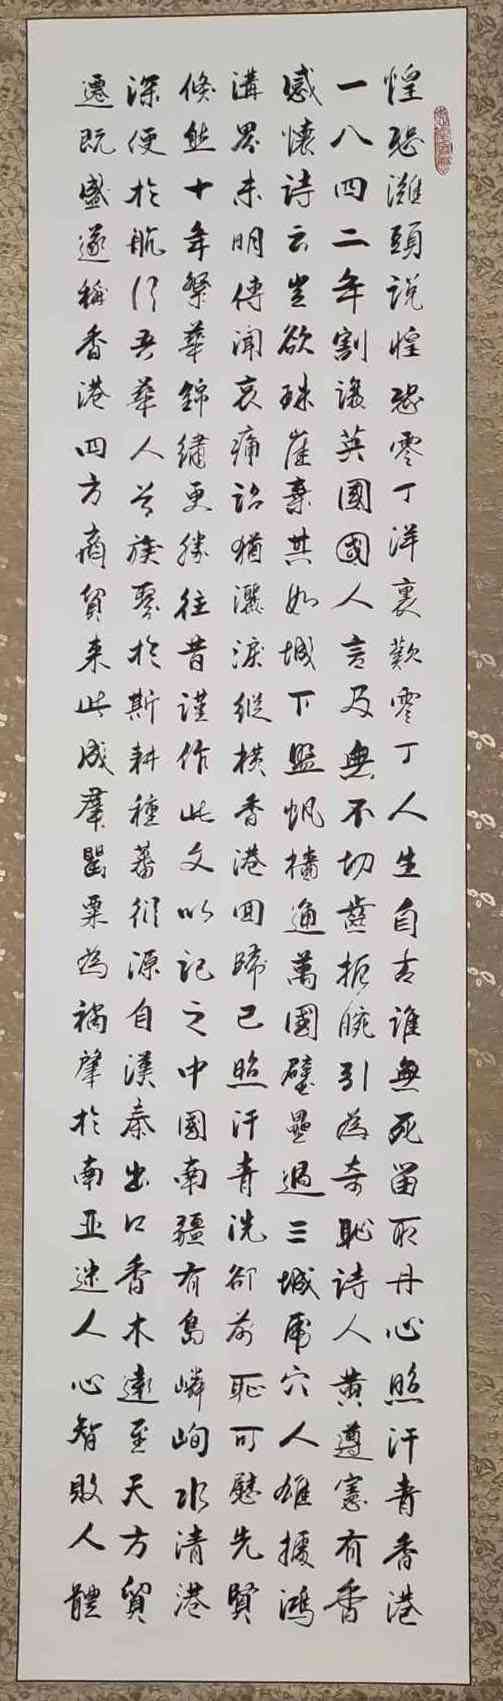 惶恐灘頭說惶恐零丁洋裏歎零丁人生自古誰無死留取丹心照汗青香港
一八四二年割讓英國國人言及無不切齒扼腕引為奇恥詩人黃遵憲有香
感懷詩云豈欲珠崖棄其如城下盟帆檣通萬國壁壘逼三城虎穴人雄據鴻
溝界未明傳聞哀痛詔猶灑淚縱橫香港回歸已照汗青洗卻前恥可慰先賢
倏然十年繁華錦繡更勝往昔謹作此文以記之中國南疆有島嶙峋水清港
深便於航行吾華人民族聚於斯耕種蕃衍源自漢秦出口香木達至天方貿
遷既盛遂稱香港四方商貿來此成羣罌粟為禍肇於南亚迷人心智敗人體